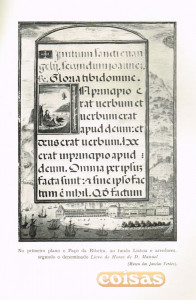 Initium sancti euan
gelii secundum joanne
Gloria tibi domine.
N principio
erat uerbum et
uerbum erat
apud deum: et
deus erat uerbum. hoc
erat in principio apud
deum. Omnia per ipsum
facta sunt: a sine ipso fac
tum est nihil. Q
No primeiro plano o Paço da Ribeira, ao fundo Lisboa e arredores,
segundo o denominado Livro de Horas de D. Manuel
(Museu das Janelas Verdes).
coisas